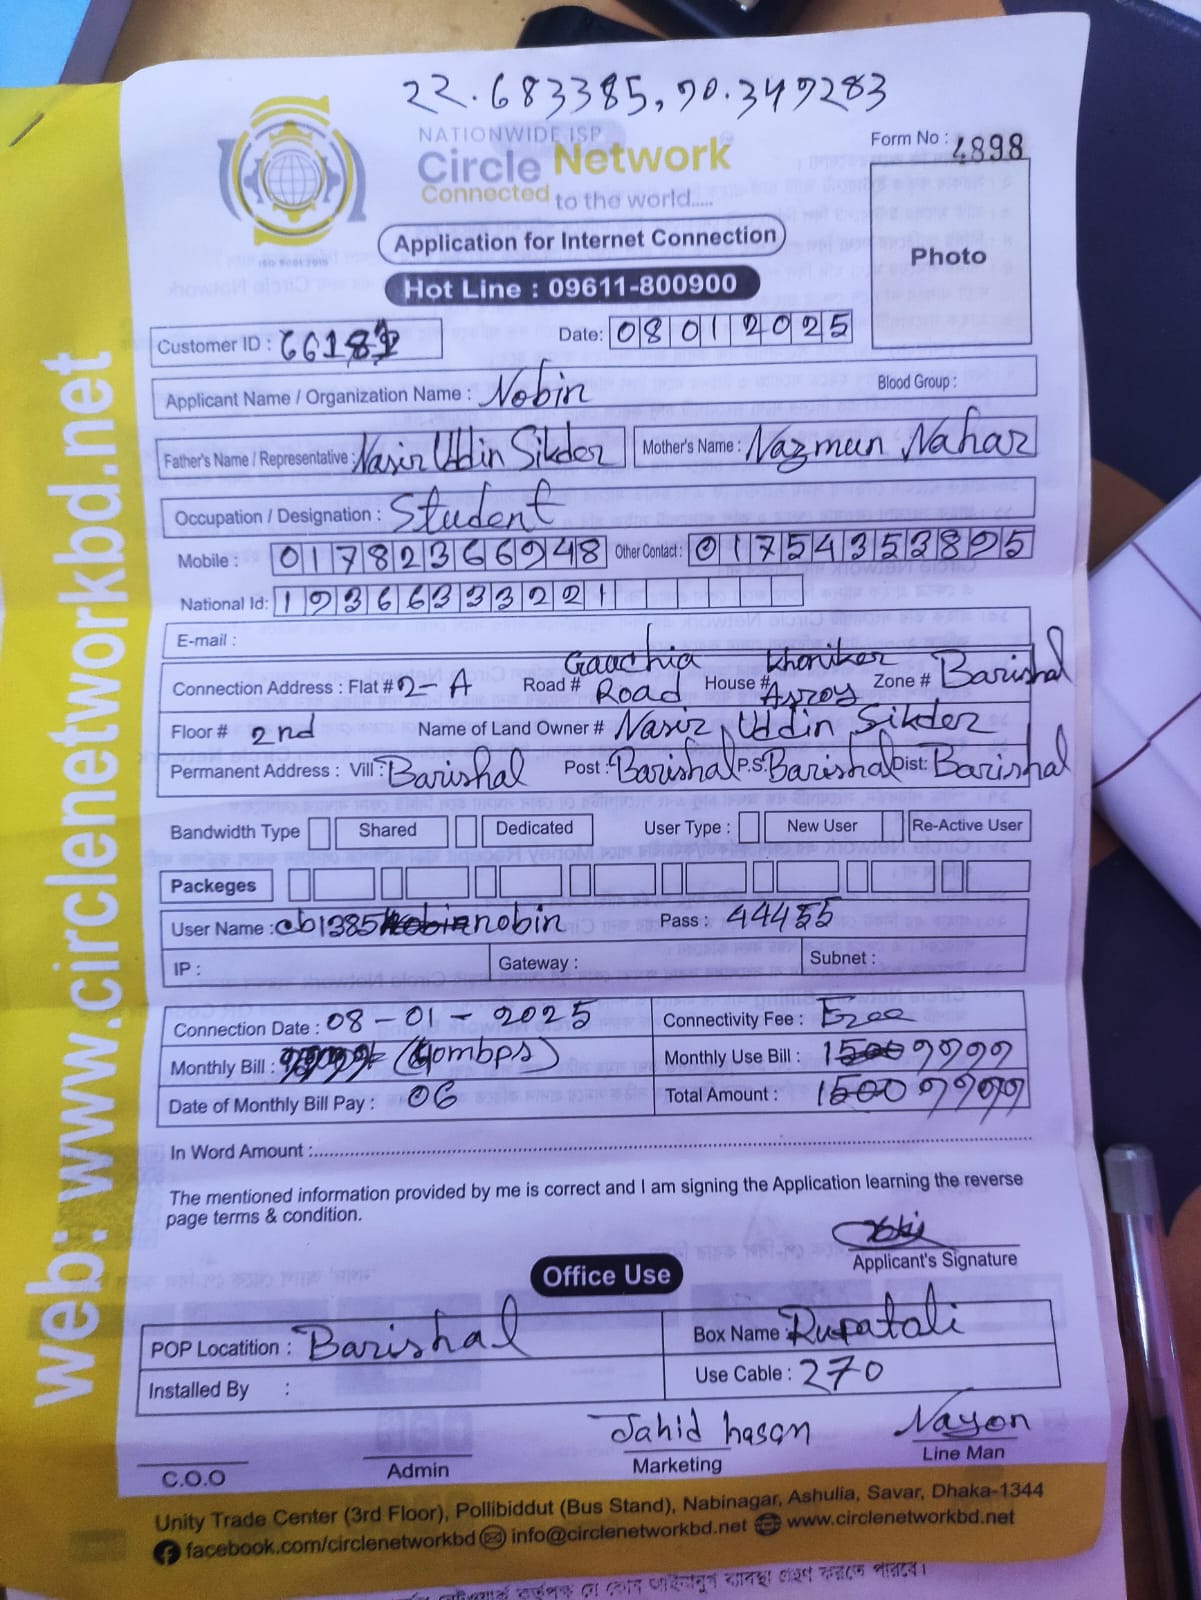 22.683385, 90.349283
NATIONWIDE ISP
Circle Network
Connected to the world.....
Form No : 4898
Photo
ISO 9001:2015
Application for Internet Connection
Hot Line : 09611-800900
Customer ID : 6618
Date: 08012025
Applicant Name / Organization Name : Nobin Blood Group :
Father's Name / Representative : Nasir Uddin Sikder Mother's Name : Nazmun Nahar
Occupation / Designation : Student
Mobile : 01782366948 Other Contact : 01754353895
National Id: 1936633221
E-mail :
Connection Address : Flat # 2-A Road # Gauchia Road House # Khoniker Asroy Zone # Barishal
Floor # 2nd Name of Land Owner # Nasir Uddin Sikder
Permanent Address : Vill : Barishal Post : Barishal P.S: Barishal Dist: Barishal
Bandwidth Type Shared Dedicated User Type : New User Re-Active User
Packeges
User Name : cb1385nobin Pass : 44455
IP : Gateway : Subnet :
Connection Date : 08-01-2025 Connectivity Fee : Free
Monthly Bill : (40mbps) Monthly Use Bill : 1500
Date of Monthly Bill Pay : 06 Total Amount : 1500
In Word Amount :
The mentioned information provided by me is correct and I am signing the Application learning the reverse
page terms & condition.
Applicant's Signature
Office Use
POP Locatition : Barishal Box Name : Rupatali
Installed By : Use Cable : 270
Jahid hasan Nayon
C.O.O Admin Marketing Line Man
Unity Trade Center (3rd Floor), Pollibiddut (Bus Stand), Nabinagar, Ashulia, Savar, Dhaka-1344
facebook.com/circlenetworkbd info@circlenetworkbd.net www.circlenetworkbd.net
web: www.circlenetworkbd.net